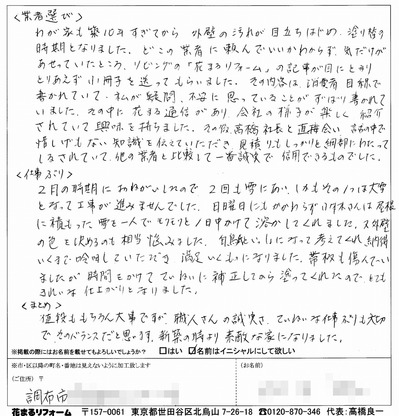 <業者選び>
わが家も築10年すぎてから 外壁の汚れが目立ちはじめ、塗り替え
時期となりました。どこの業者に頼んでいいかわからず、気だけが
あせっていたところ、リビングの「花まるリフォーム」の記事が目にとまり
とりあえず小冊子を送ってもらいました。その内容は、消費者目線で
書かれていて、私が疑問、不安に思っていることがずばり書かれて
いました。その中に花まる通信があり、会社の様子が楽しく紹介
されていて興味を持ちました。その後、高橋社長と直接会い、
惜しげもない知識を伝えていただき 見積りもしっかりと細部にわたって
しるされていて、他の業者と比較して一番誠実で 信用できるものでした。
<仕事ぶり>
2月の時期におねがいしたので 2回も雪にあい、しかもその1つは大雪
となって工事が進みませんでした。日曜日にもかかわらず 屋根
に積もった雪を一人でもくもくと1日中かけて溶かしてくれました。又外壁
の色を決めるのも相当悩みました。何回も いっしょになって考えてくれ、納得
いくまで吟味していただき 満足いくものになりました。帯板も傷んでい
ましたが 時間をかけて ていねいに補正してから塗ってくれたので、とても
きれいな仕上がりとなりました。
<まとめ>
値段ももちろん大事ですが、職人さんの誠実さ、ていねいな仕事ぶりも大切
で そのバランスだと思います。新築の時より 素敵な家になりました。
※掲載の際にはお名前を載せてもよろしいでしょうか? □はい ☑名前はイニシャルにして欲しい
※市・区以降の町名・番地は見えないように加工致します
(ご住所) 〒
(お名前)
調布市
花まるリフォーム 〒157-0061 東京都世田谷区北烏山7-26-18 ☎0120-870-346 代表:高橋良一